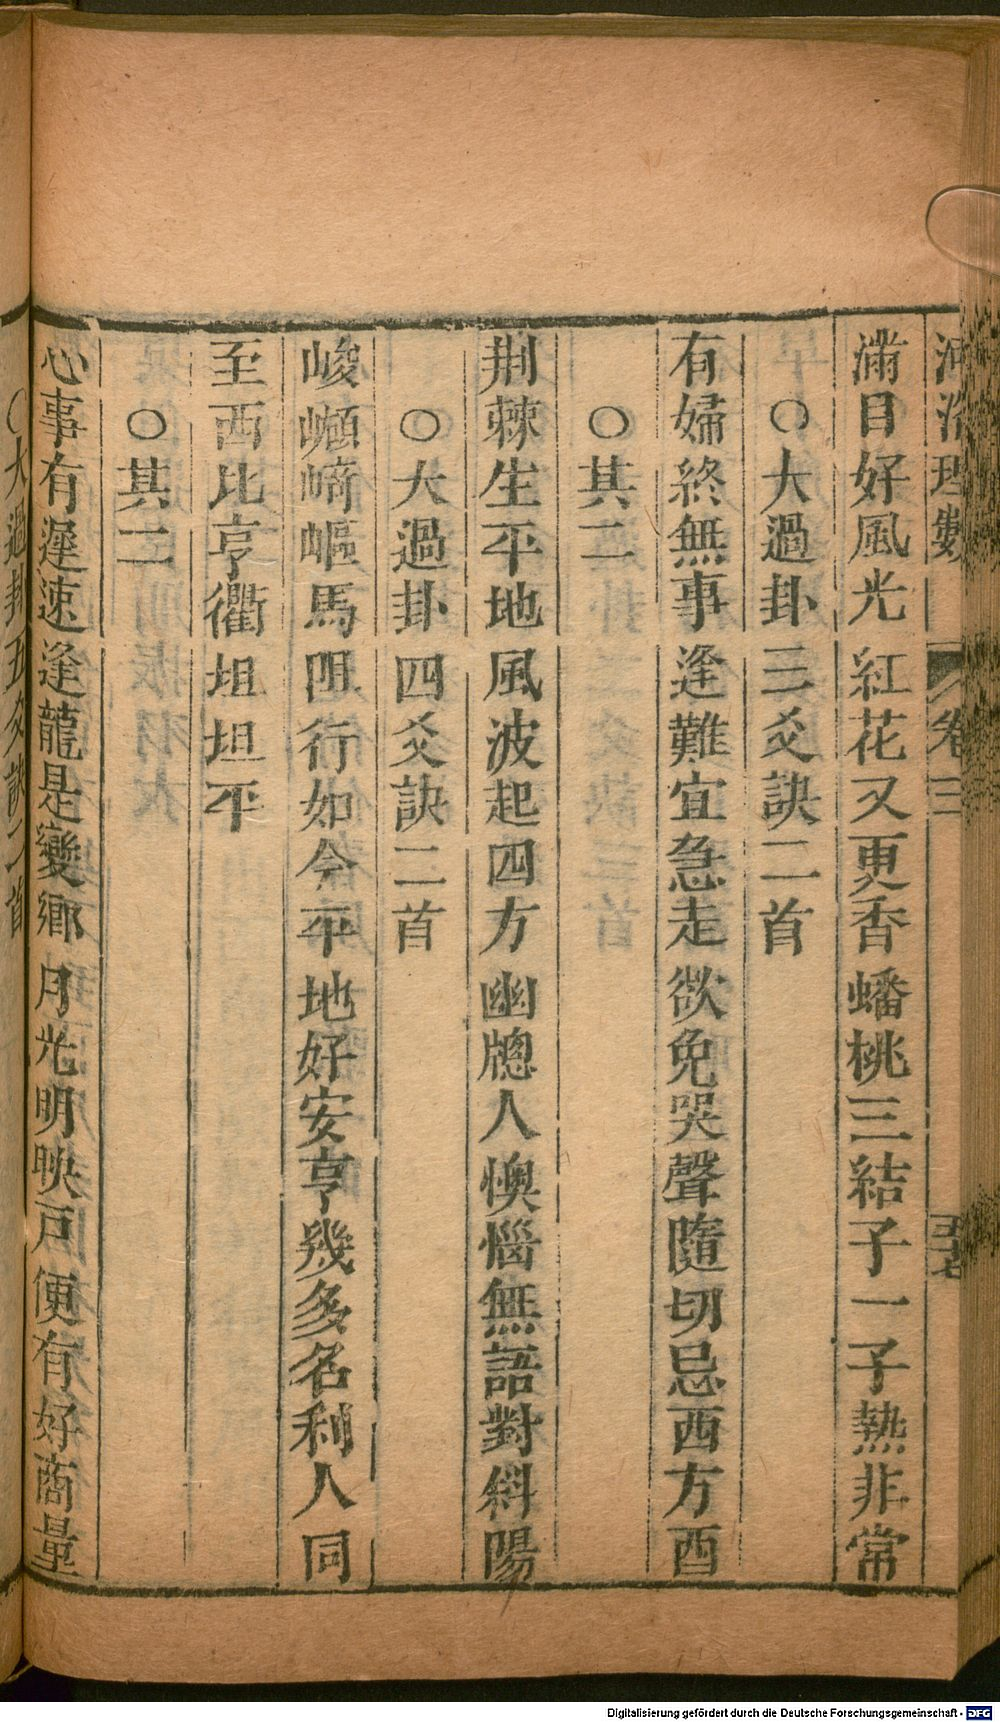 河洛理數 卷三 五十七
滿目好風光紅花又更香蟠桃三結子一子熟非常
○大過卦三爻訣二首
有婦終無事逢難宜急走欲免哭聲隨切忌西方酉
○其二
荆棘生平地風波起四方幽牕人懊惱無語對斜陽
○大過卦四爻訣二首
峻嶺﨑嶇馬阻行如今平地好安亨幾多名利人同
至西北亨衢坦坦平
○其二
心事有遲速逢龍是變鄉月光明映戸便有好商量
○大過卦五爻訣二首
Digitalisierung gefördert durch die Deutsche Forschungsgemeinschaft - DFG